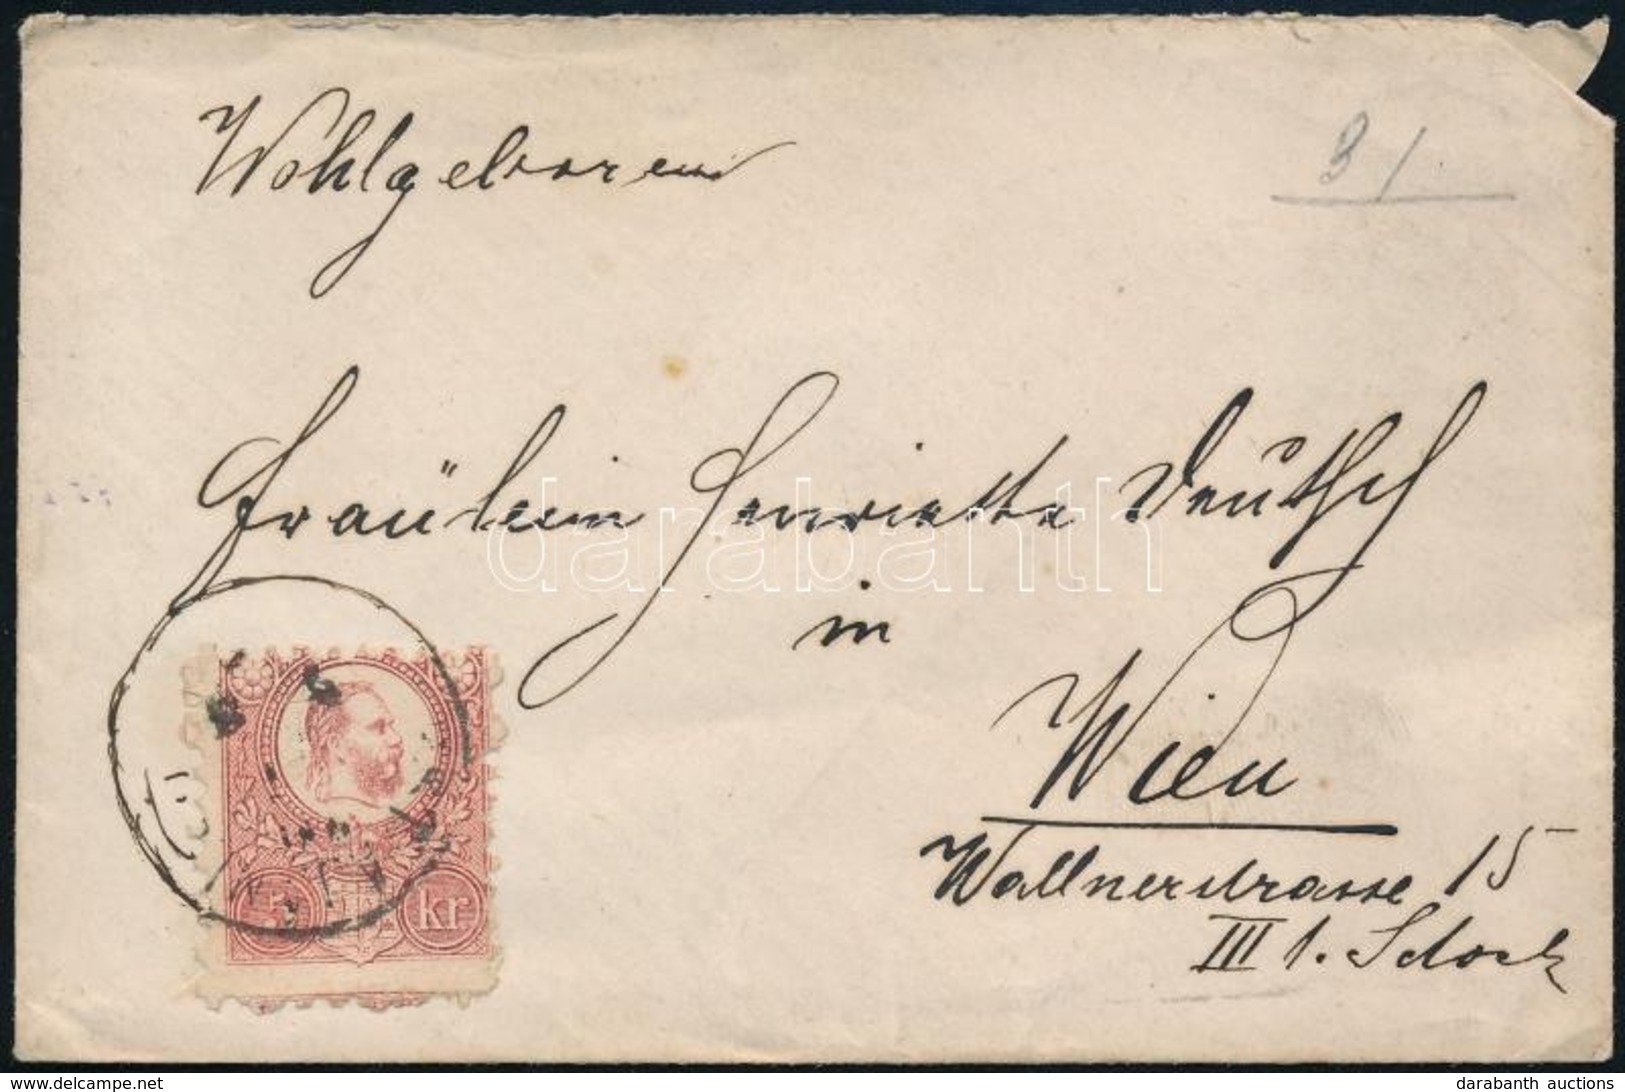 Wohlgeboren
31
Fräulein Henriette Deutsch
in
Wien
Wallnerstrasse 15
III 1. Stock
5 kr
darabanth
www.delcampe.net
darabanth auctions